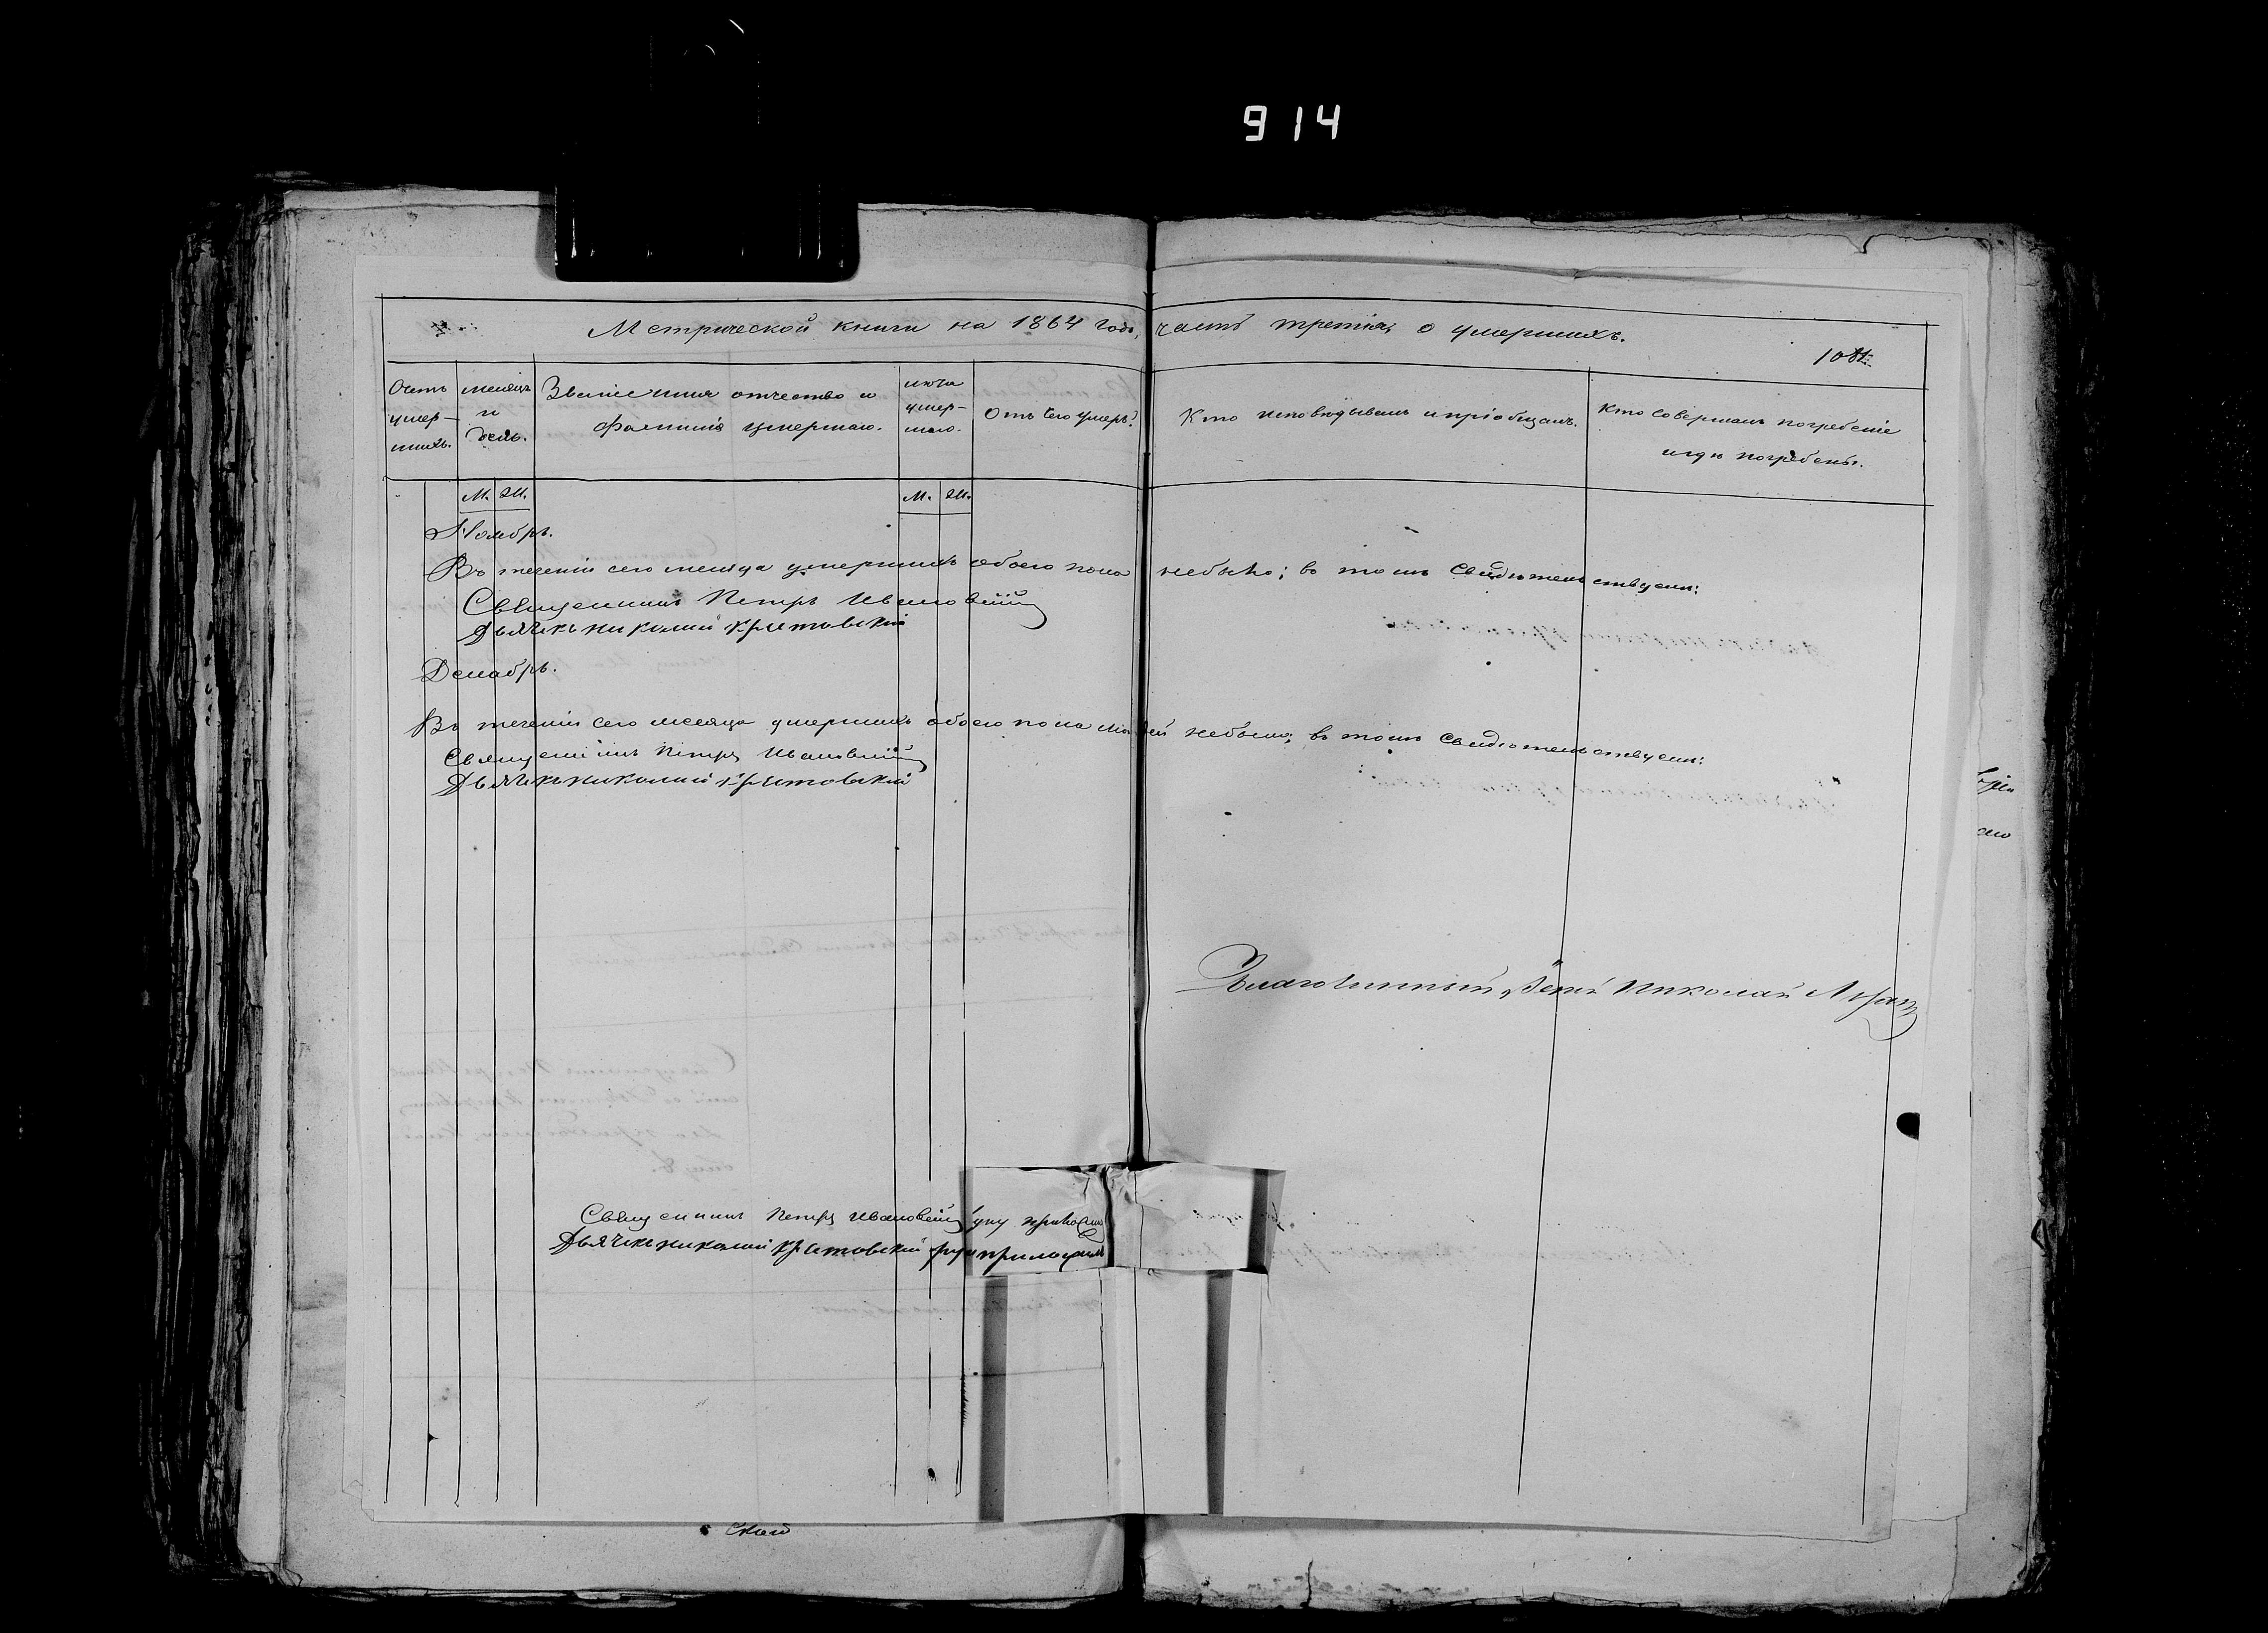 914
Метрической книги на 1864 годъ, часть третія о умершихъ.
Счетъ умер-шихъ.
месяцъ и день.
Званіе имя отчество и фамилія умершаго.
лета умер-шаго.
Отъ чего умеръ?
Кто исповѣдывалъ и пріобщалъ.
Кто совершалъ погребеніе и гдѣ погребены.
М. Ж.
М. Ж.
Ноябрь.
Въ теченіи сего месяца умершихъ обоего пола небыло; въ томъ свидѣтельствуемъ:
Священникъ Петръ
Дьячекъ Николай
Декабрь.
Въ теченіи сего месяца умершихъ обоего пола людей небыло; въ томъ свидѣтельствуемъ:
Священникъ Петръ
Дьячекъ Николай
Благочинный Іерей Николай
Священникъ Петръ руку приложилъ
Дьячекъ Николай руку приложилъ